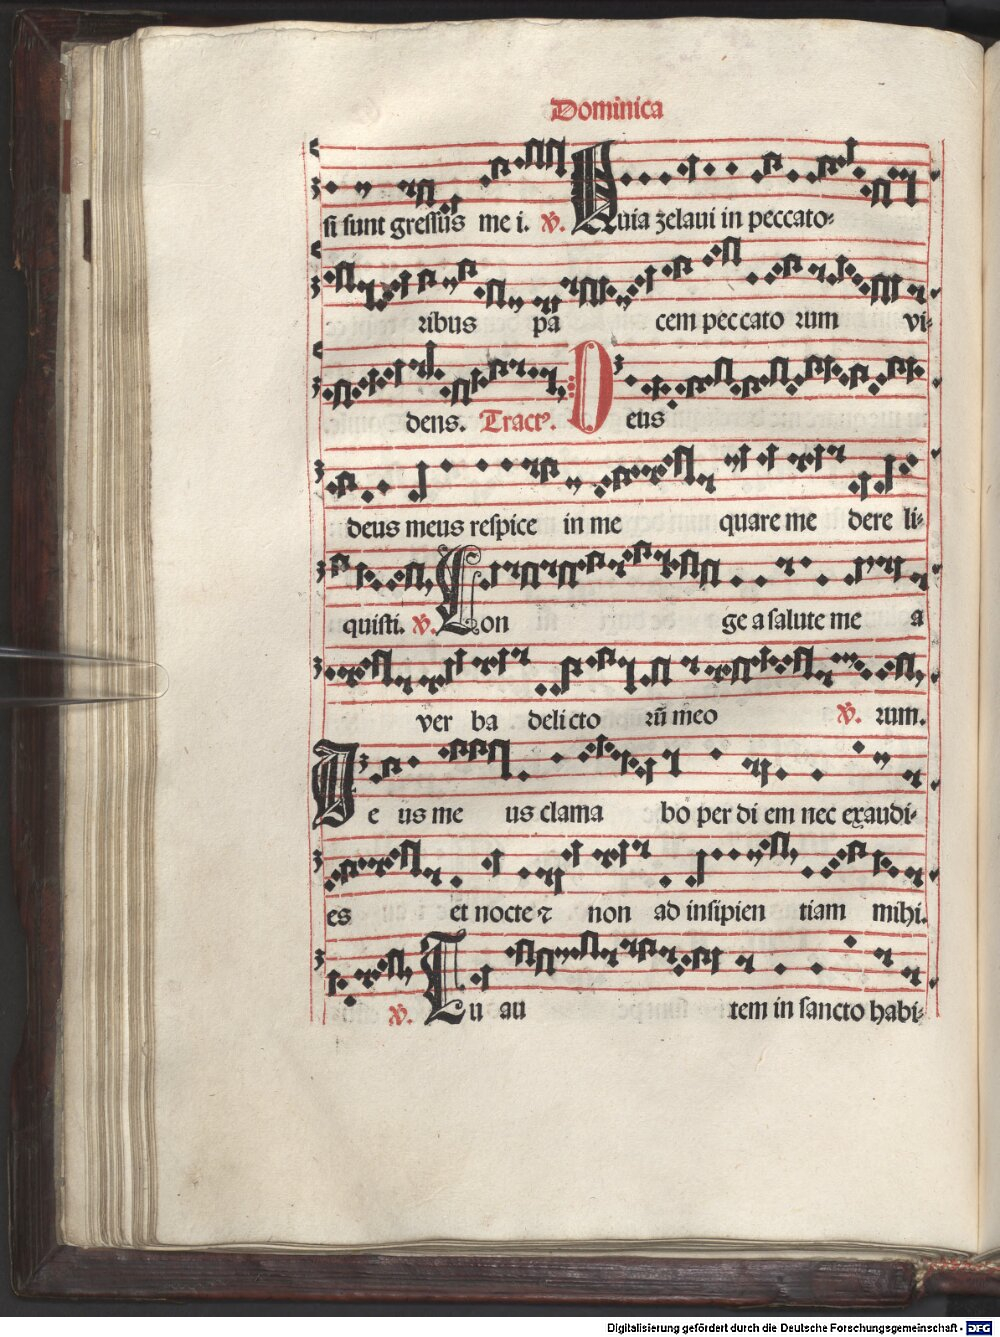 Dominica
si sunt gressus me i. ℣. Quia zelaui in peccato-
ribus pa cem peccato rum vi-
dens. Tractꝰ. Deus
deus meus respice in me quare me dere li-
quisti. ℣. Lon ge a salute me a
ver ba delicto rū meo ℣. rum.
De us me us clama bo per di em nec exaudi-
es et nocte ⁊ non ad insipien tiam mihi.
℣. Tu au tem in sancto habi-
Digitalisierung gefördert durch die Deutsche Forschungsgemeinschaft - DFG